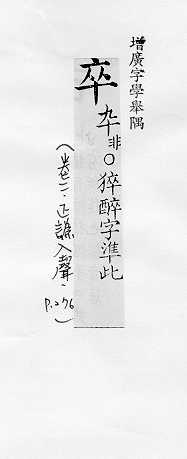 增廣字學舉隅
卒 卆非○猝醉字準此
(卷二·正譌入聲·P.276)